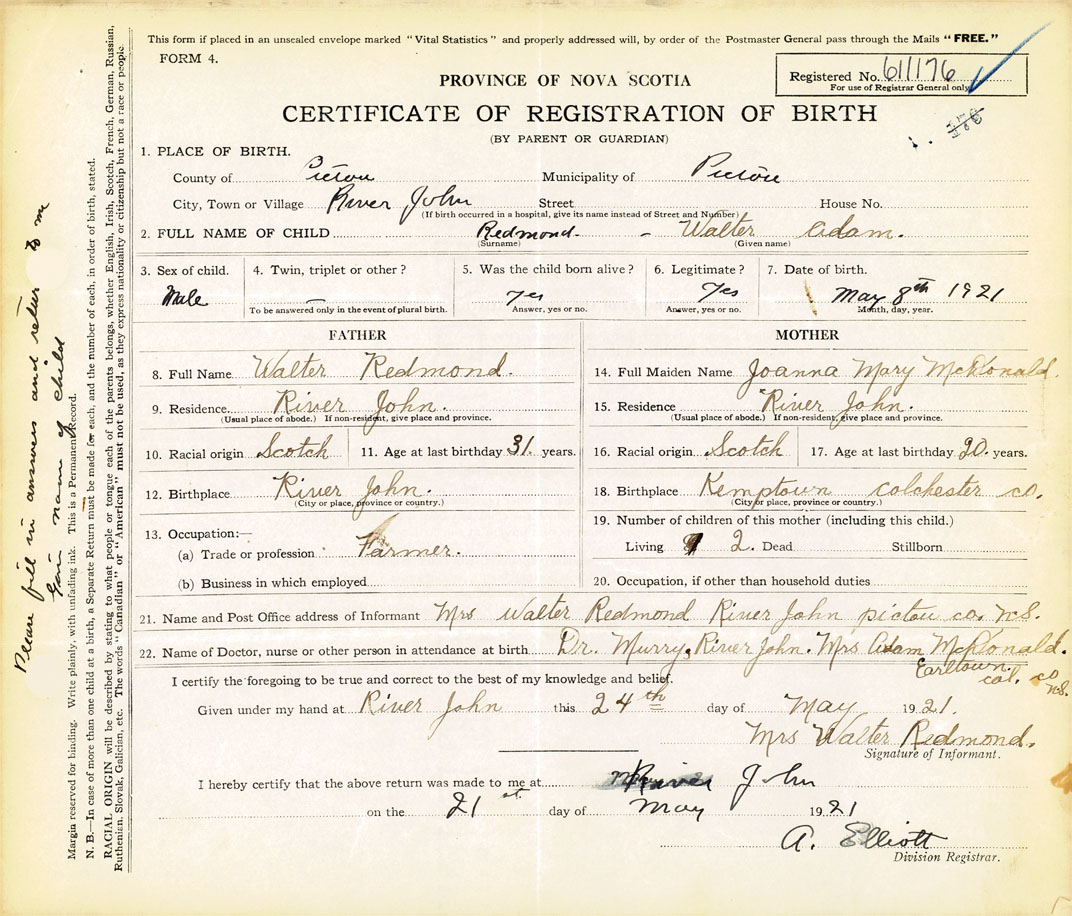 This form if placed in an unsealed envelope marked "Vital Statistics" and properly addressed will, by order of the Postmaster General pass through the Mails "FREE."
FORM 4.
Registered No. 611176
For use of Registrar General only
PROVINCE OF NOVA SCOTIA
CERTIFICATE OF REGISTRATION OF BIRTH
(BY PARENT OR GUARDIAN)
1. PLACE OF BIRTH.
County of Pictou Municipality of Pictou
City, Town or Village River John Street House No.
(If birth occurred in a hospital, give its name instead of Street and Number)
2. FULL NAME OF CHILD Redmond - Walter Adam.
(Surname) (Given name)
3. Sex of child. 4. Twin, triplet or other? 5. Was the child born alive? 6. Legitimate? 7. Date of birth.
Male — yes yes May 8th 1921
To be answered only in the event of plural birth. Answer, yes or no. Answer, yes or no. Month, day, year.
FATHER MOTHER
8. Full Name Walter Redmond. 14. Full Maiden Name Joanna Mary McDonald.
9. Residence. River John. 15. Residence River John.
(Usual place of abode.) If non-resident, give place and province. (Usual place of abode.) If non-resident, give place and province.
10. Racial origin Scotch 11. Age at last birthday 31. years. 16. Racial origin Scotch 17. Age at last birthday 20. years.
12. Birthplace River John. 18. Birthplace Kemptown Colchester co.
(City or place, province or country.) (City or place, province or country.)
13. Occupation:— 19. Number of children of this mother (including this child.)
(a) Trade or profession Farmer. Living 2. Dead Stillborn
(b) Business in which employed 20. Occupation, if other than household duties
21. Name and Post Office address of Informant Mrs Walter Redmond River John pictou co. N.S.
22. Name of Doctor, nurse or other person in attendance at birth Dr. Murry, River John. Mrs Adam McDonald.
Earltown. col. co N.S.
I certify the foregoing to be true and correct to the best of my knowledge and belief.
Given under my hand at River John this 24th day of May 1921.
Mrs Walter Redmond.
Signature of Informant.
I hereby certify that the above return was made to me at River John
on the 21st day of May 1921
A. Elliott
Division Registrar.
Please fill in answers and return to me
Gain name of child
Margin reserved for binding. Write plainly, with unfading ink. This is a Permanent Record.
N. B.—In case of more than one child at a birth, a Separate Return must be made for each, and the number of each, in order of birth, stated.
RACIAL ORIGIN will be described by stating to what people or tongue each of the parents belongs, whether English, Irish, Scotch, French, German, Russian,
Ruthenian, Slovak, Galician, etc. The words "Canadian" or "American" must not be used, as they express nationality or citizenship but not a race or people.